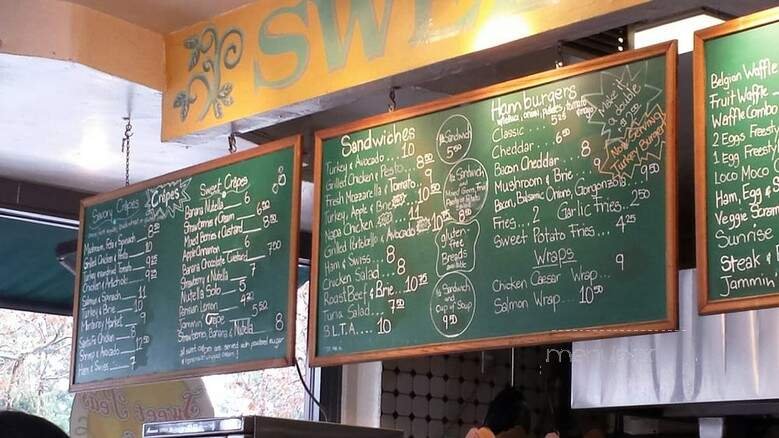 SWEE
Savory Crêpes
Mushroom, Feta & Spinach
Grilled Chicken & Pesto
Turkey, Tomato
Chicken & Artichoke
Salmon & Spinach 11
Turkey & Brie 10
Monterey Market 9
Santa Fe Chicken
Shrimp & Avocado
Ham & Swiss 7
Crêpes
Sweet Crêpes
Banana Nutella 8
Strawberries & Cream
Mixed Berries & Custard
Apple Cinnamon
Banana Chocolate Custard
Strawberry & Nutella 7
Nutella Solo 5
Parisian Lemon 4.75
Jammin Crepe 5.50
Strawberries, Banana & Nutella 8
all sweet crêpes are served with powdered sugar
& homemade whipped cream!
Sandwiches
Turkey & Avocado.. 10
Grilled Chicken & Pesto.. 8.50
Fresh Mozzarella & Tomato.
Turkey, Apple & Brie
Napa Chicken
Grilled Portobello & Avocado
Ham & Swiss... 8
Chicken Salad... 8
Roast Beef & Brie.. 10.75
Tuna Salad.... 7.50
B.L.T.A.... 10
½ Sandwich
5.50
½ Sandwich
Mixed Green, Fruit,
gluten-
free
Breads
available
½ Sandwich
and
Cup of Soup
9.50
Hamburgers
lettuce, onions, pickles, tomato
Classic .... 5.25
Cheddar ..... 6.50
Bacon Cheddar ..... 8
Mushroom & Brie ... 9
Bacon, Balsamic Onions, Gorgonzola.. 9.50
Fries... 2 Garlic Fries.. 2.50
Sweet Potato Fries... 4.25
Wraps
Chicken Caesar Wrap.... 9
Salmon Wrap.... 10.50
Make it
a double
Now Serving
Turkey Burger
Belgian Waffle
Fruit Waffle
Waffle Combo
2 Eggs Freestyl
1 Egg Freestyl
Loco Moco
Ham, Egg &
Veggie Scram
Sunrise
Steak &
Jammin